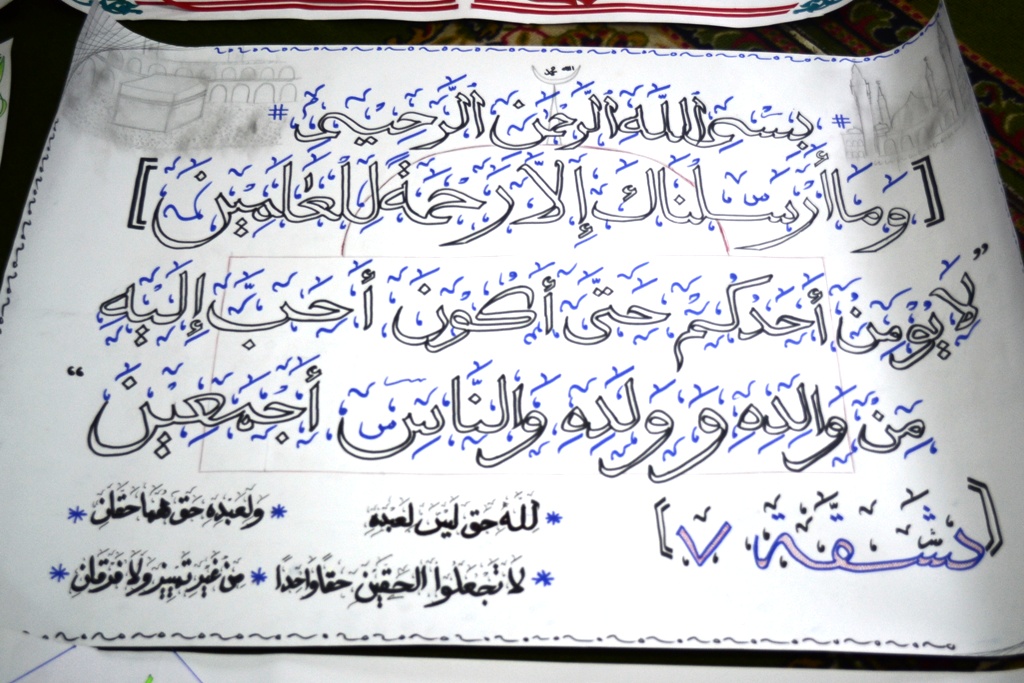 الله محمد
# بسم الله الرحمن الرحيم #
[وَمَا أَرْسَلْنَاكَ إِلَّا رَحْمَةً لِلْعَالَمِينَ]
"لَا يُؤْمِنُ أَحَدُكُمْ حَتَّى أَكُونَ أَحَبَّ إِلَيْهِ
مِنْ وَالِدِهِ وَ وَلَدِهِ وَالنَّاسِ أَجْمَعِينَ"
[ ٧]
* لله حق ليس لعبده * ولعبده حق هما حقان *
* لا تجعلوا الحقين حقا واحدا * من غير تمييز ولا فرقان *